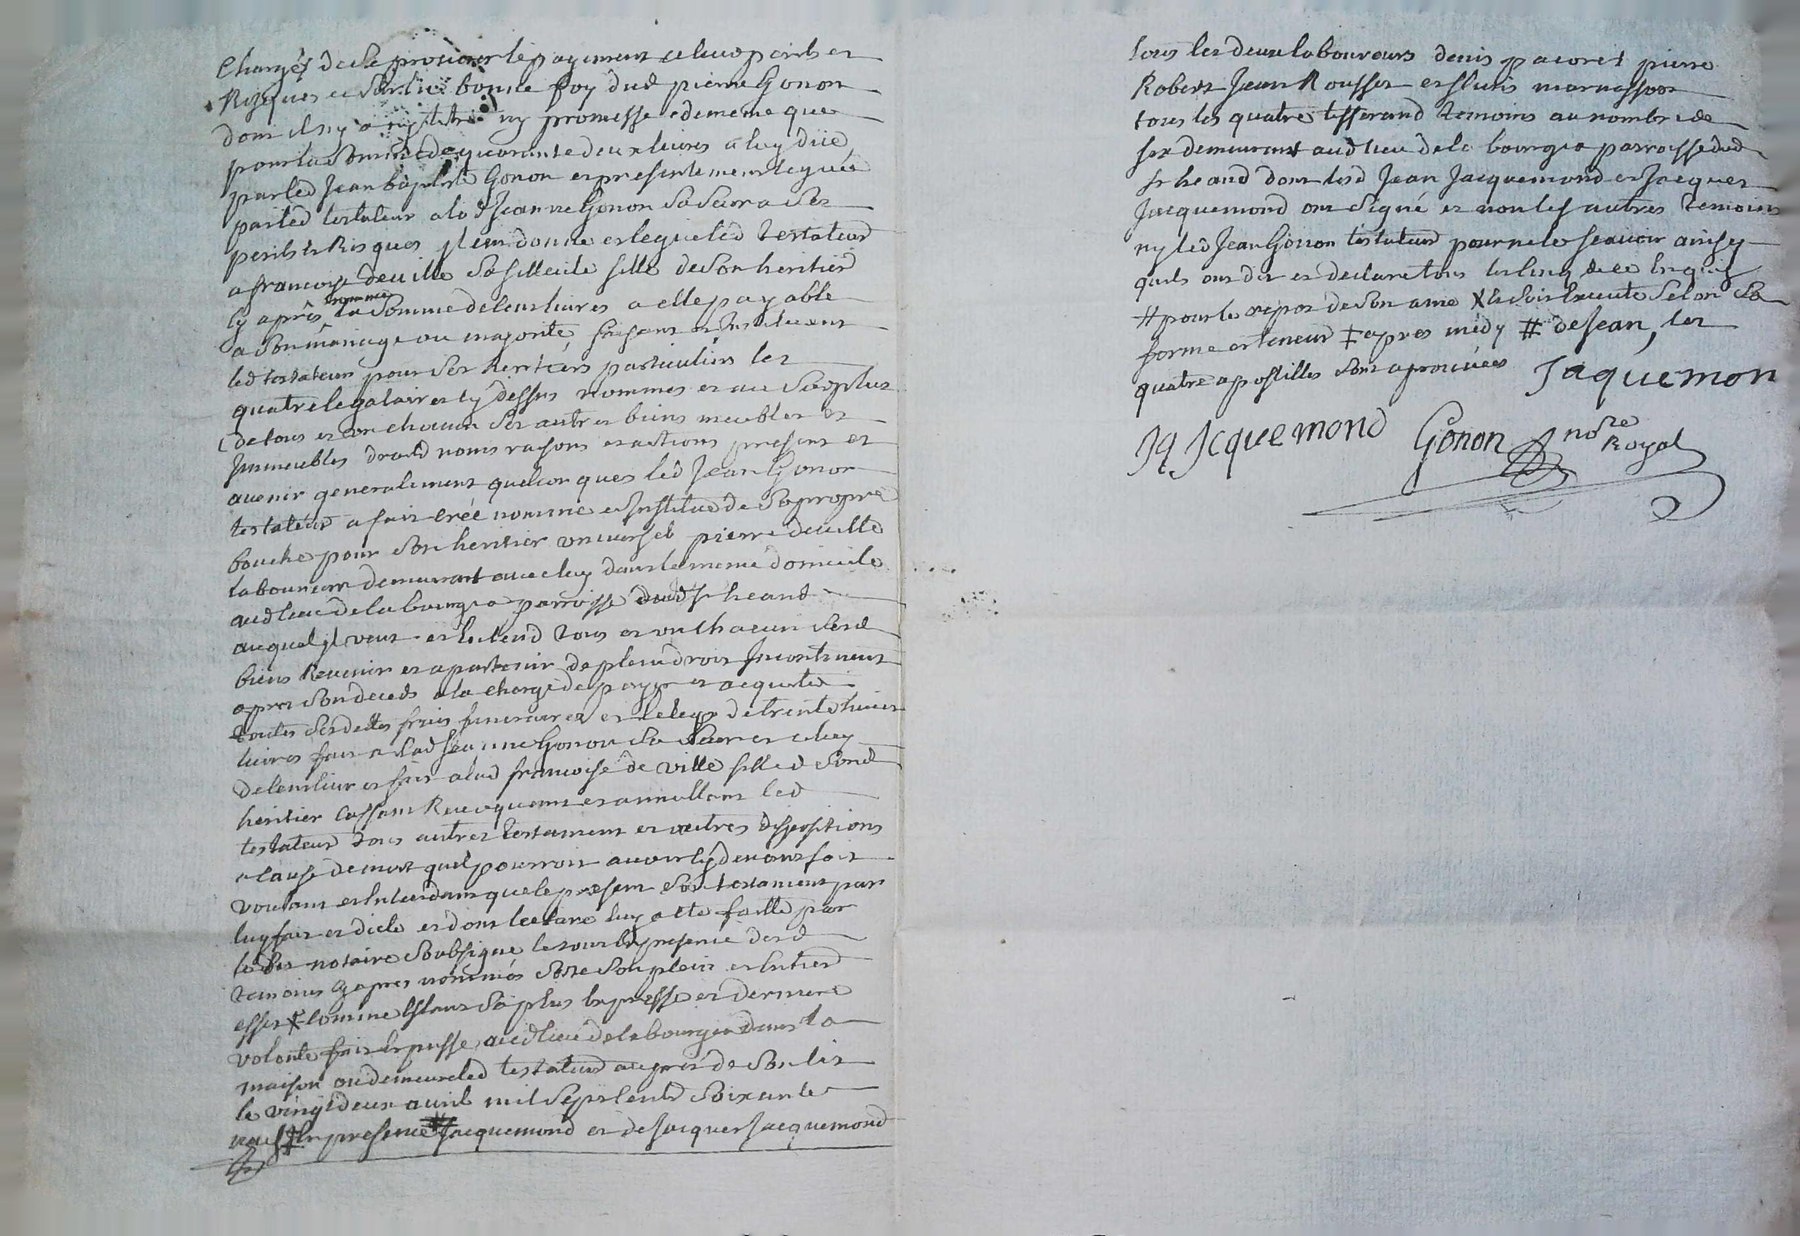 chargés de se procurer le payement a leurs perils et
Risques et sur la bonne foy dud pierre Gonon
dont il ny a ny titre ny promesse de meme que
pour la somme de quarante deux livres a luy düe
par led Jean baptiste Gonon et presentement leguée
par led testateur a lad Jeanne Gonon sa sœur a ses
perils et Risques jl eur donne et legue led testateur
a francoise deville sa filleule fille de son heritier
cy aprés nommé la somme de cent livres a elle payable
a son mariage ou majorité faisant et Instituant
led testateur pour ses heritiers particuliers les
quatre legataires cy dessus nommes et au surplus
de tous et un chacun ses autres biens meubles et
Immeubles droits noms raisons et actions presens et
avenir generalement quelconques led Jean Gonon
testateur a fait créé nommé et Institue de sa propre
bouche pour son heritier universel pierre deville
laboureur demeurant avec luy dans le meme domicile
aud lieu de la bourgea parroisse dud st heand
auquel jl veut et Entend tous et un chacun sesd
biens Revenir et apartenir de plein droit Incontinent
apres son deceds a la charge de payer et acquiter
toutes ses dettes frais funeraires et le legs de trente huit
livres fait a lad Jeanne Gonon sa sœur et celuy
de cent livres fait a lad francoise de ville fille d sond
heritier Cassant Revoquant et annullant led
testateur tous autres testament et autres dispositions
a cause de mort quil pourroit avoir cy devant fait
voulant et Entendant que le present son testament par
luy fait et dicté et dont lecture luy a eté faitte par
le no notaire soubsigné le tout En presence desd
temoins cy apres nommés sorte son plein et Entier
effet X comme Etant sa plus Expresse et derniere
volonté fait et passé aud lieu de la bourgea dans la
maison ou demeure led testateur au pres de son lit
le vingt deux avril mil sept cent soixante
neuf ‡ En presence # Jacquemond et de Jacques Jacquemond
tous les deux laboureurs denis pacoret pierre
Robert Jean Rousset et
tous les quatre tisserand temoins au nombre de
six demeurant aud lieu de la bourgea parroisse dud
st heand dont lesd Jean Jacquemond et Jacques
Jacquemond ont signé et non les autres temoins
ny led Jean Gonon testateur pour ne le scavoir ainsy
quils ont dit et declaré tous
# pour le repos de son ame X le soit Execute selon sa
forme et teneur ‡ apres midy # de Jean, les
quatre apostilles sont aprouvées Jaquemon
Jq Jcquemond Gonon nore
Royal